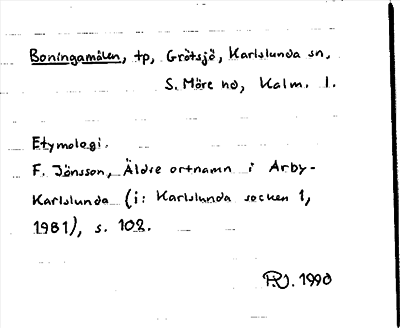 Boningamålen, tp, Grötsjö, Karlslunda sn,
S. Möre hd, Kalm. l.
Etymologi.
F. Jönsson, Äldre ortnamn i Arby-
Karlslunda (i: Karlslunda socken 1,
1981), s. 102.
1990